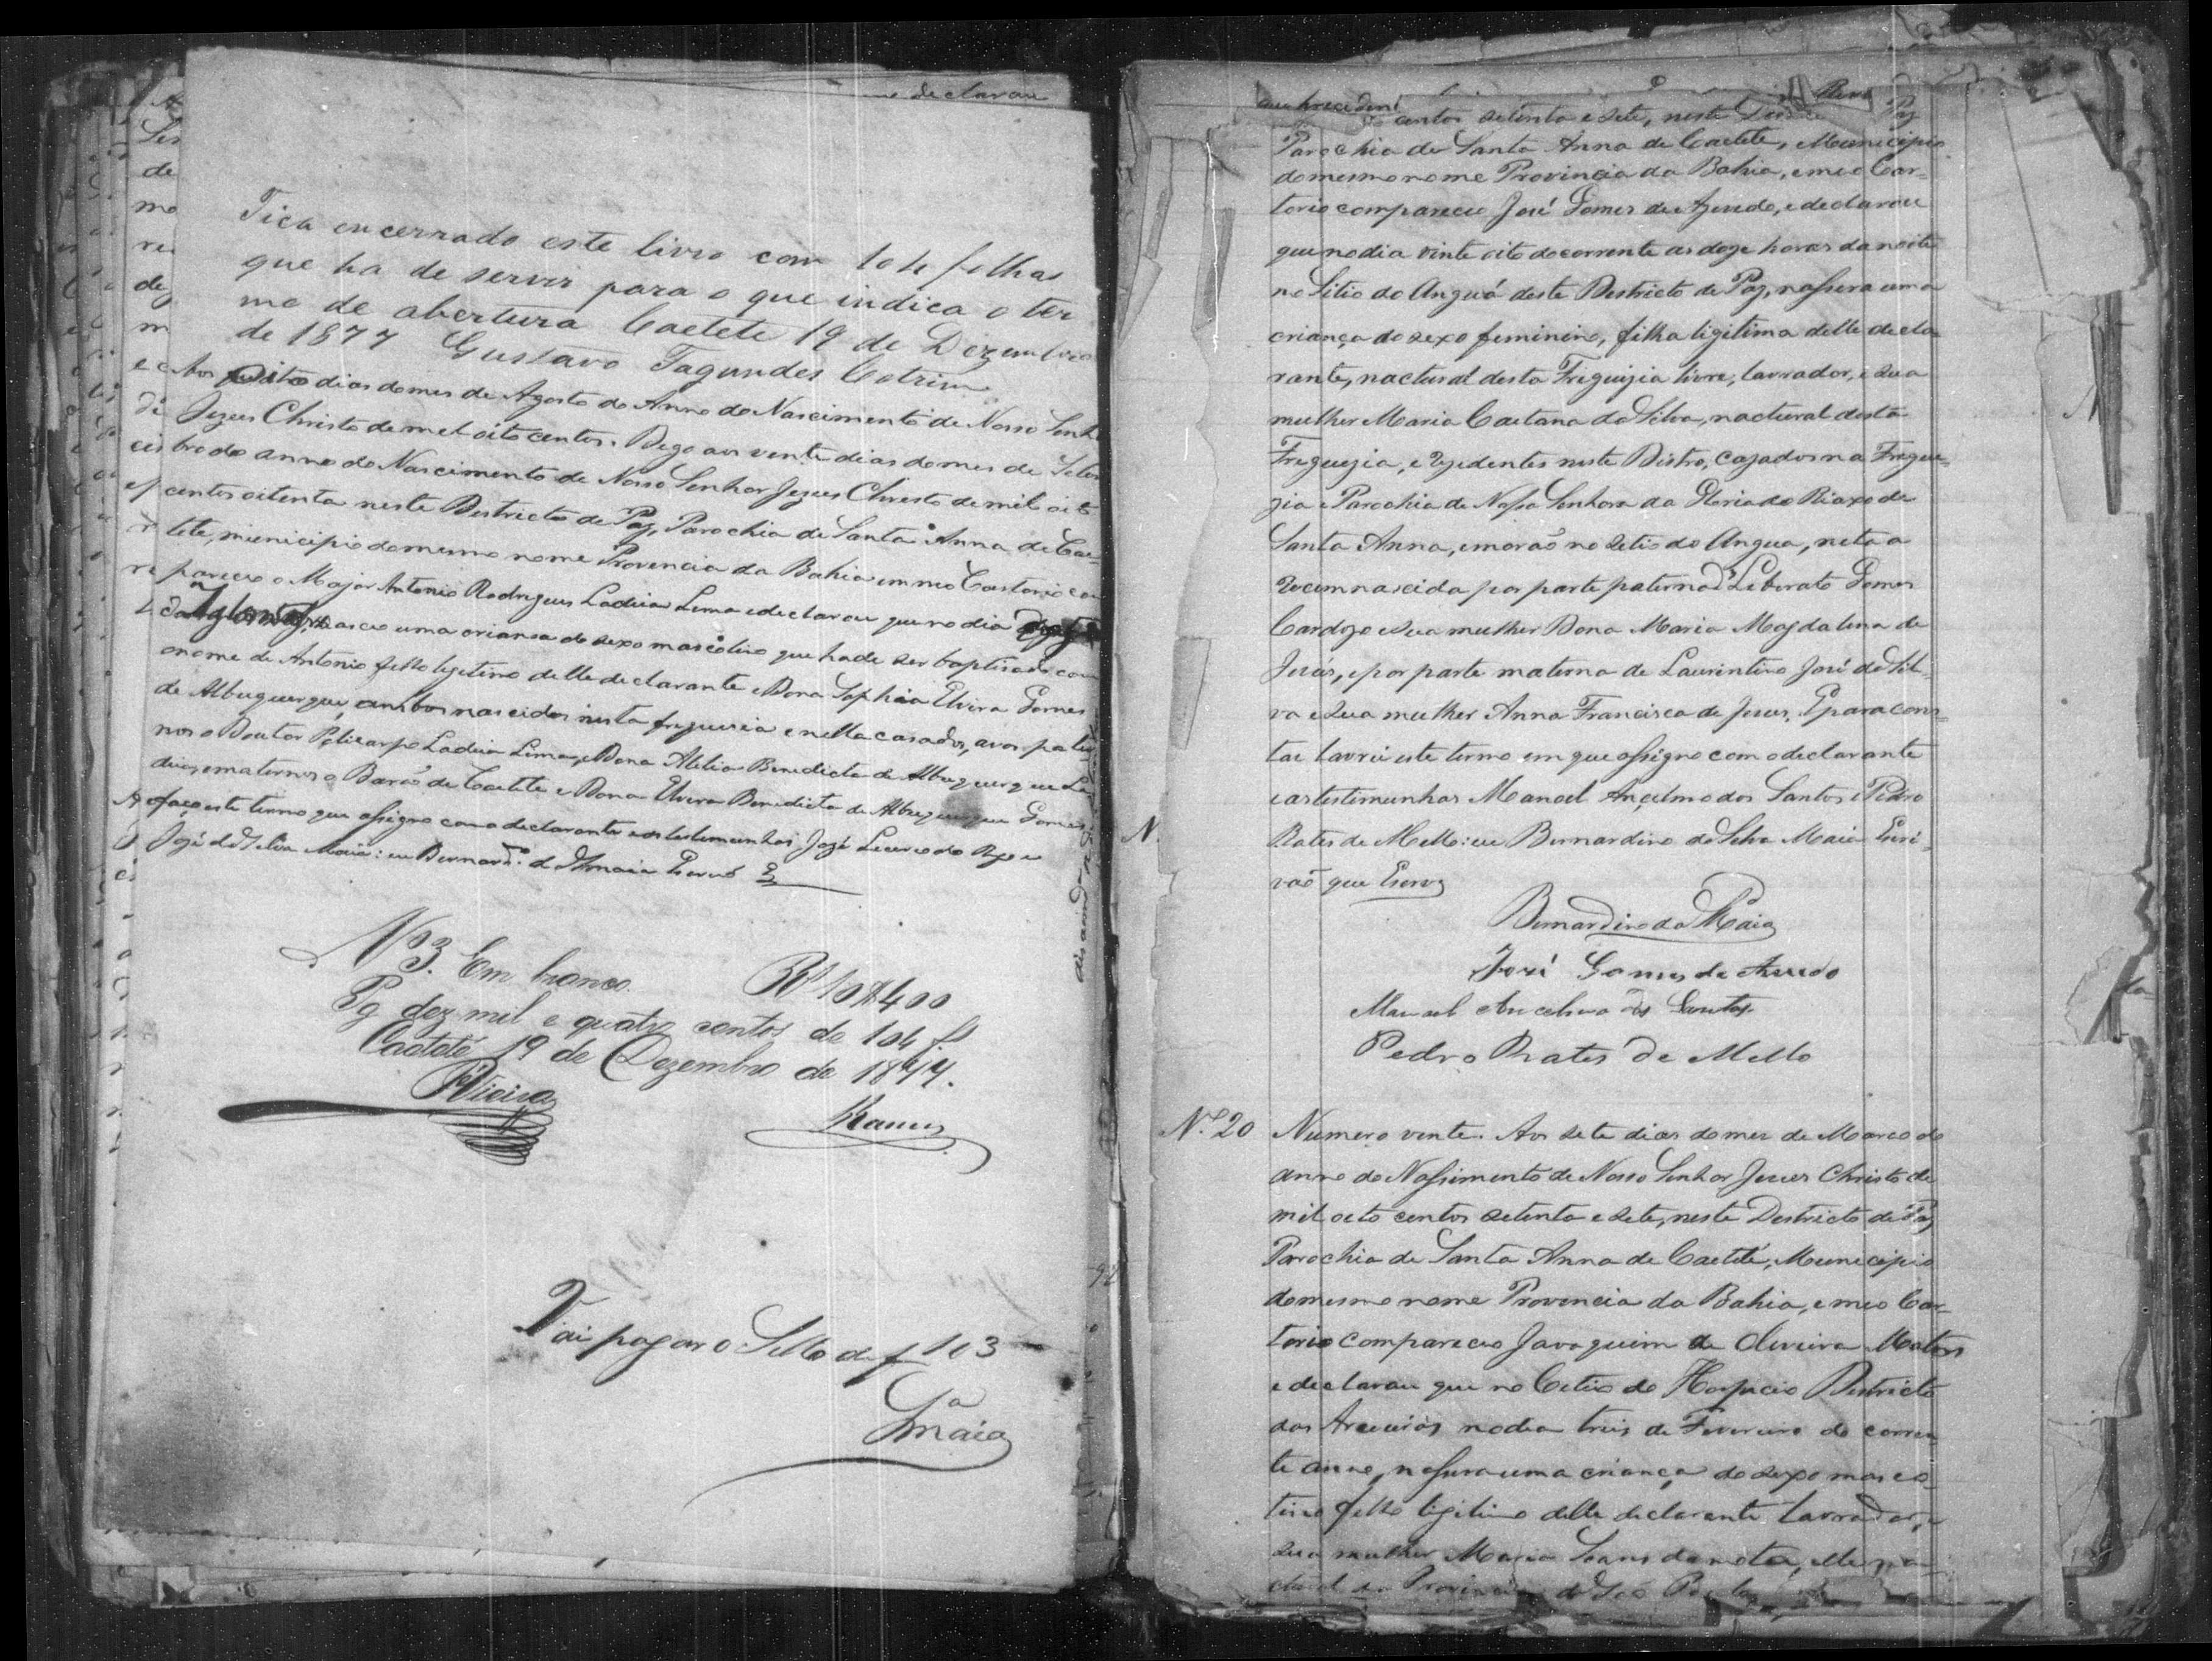 Fica encerrado este livro com 104 folhas
que ha de servir para o que indica o ter
mo de abertura Caetete 19 de Dezembro
de 1877 Gustavo Fagundes Cotrim
Aos oito dias do mes de Agosto do Anno do Nascimento de Nosso Senhor
Jezus Christo de mil oito centos. Digo aos vente dias do mes de Setem
bro do anno do Nascimento de Nosso Senhor Jezus Christo de mil oito
centos oitenta neste Destricto de Paz, Parochia de Santa Anna de Cae=
tete, municipio do mesmo nome Provencia da Bahia em meo Cartorio com
pareceo o Major Antonio Rodrigues Ladeia Lima e declarou que no dia
nasceo uma criansa do sexo mascolino que hade ser baptisado com
o nome de Antonio filho legetimo delle declarante e Dona Sophia Elvira Gomes
de Albuquerque, ambos nascidos nesta freguezia e nella casados, avos pater
nos o Doutor Policarpo Ladeia Lima, e Dona Atilia Benedicta de Albuquerque La
deia, e maternos o Barão de Caetite e Dona Elvira Benedicta de Albuquerque Gomes
faço este termo que assigno com o declarante e as testemunhas José Lucerio do Rego e
José da Silva Maia: eu Bernard.º da S Maia Escrivão
Nº 3. Em branco. Rs 10$400
Pg dez mil e quatro centos de 104 fs
Caeteté 19 de Dezembro de 1877.
Vieira Ramos
Vai pagar o Sello de f 103
Sª Maia
centos setenta e sete, neste Destricto de Paz
Parochia de Santa Anna de Caetete, Municipio
do mesmo nome Provincia da Bahia, e meo Car=
torio compareceo José Gomes de Azevedo, e declarou
que no dia vinte oito do corrente as doze horas da noite
no Sitio do Anguá deste Destricto de Paz, nassera uma
criança do sexo feminino, filha ligitima delle decla
rante, nactural desta Freguizia livre, lavrador, e sua
mulher Maria Caetana da Silva, nactural desta
Freguezia, e rezedentes neste Distro, cazados na Fregue=
zia e Parochia de Nossa Senhora da Gloria do Riaxo de
Santa Anna, e morão no Setio do Angua, neta a
recemnascida por parte paterna d' Leberato Gomes
Cardozo e sua mulher Dona Maria Magdalena de
Jesus, e por parte materna de Laurentino José da Sil
va e sua mulher Anna Francisca de Jesus. E para cons=
tar lavrei este termo em que assigno com o declarante
e as testimunhas Manoel Ancelmo dos Santos e Pedro
Rates de Mello: eu Bernardino da Silva Maia Escri
vão que Escrevy
Bernardino da S Maia
José Gomes de Azevedo
Manoel Ancelmo dos Santos
Pedro Prates de Mello
Nº 20 Numero vente. Aos sete dias do mes de Marco do
anno do Nassimento de Nosso Senhor Jesus Christo de
mil oito centos setenta e sete, neste Destricto de Paz
Parochia de Santa Anna de Caetité, Municipio
do mesmo nome Provencia da Bahia, e meo Car=
torio compareceo Javaquim de Oliveira Matos
e declarou que no Cetio do Hospicio Districto
das no dia treis de Fevereiro do corren
te anno, nassera uma criança do sexo masco
lino filho ligitimo delle declarante lavrador, e
sua mulher Maria elle na
ctural da Provincia de São Paulo